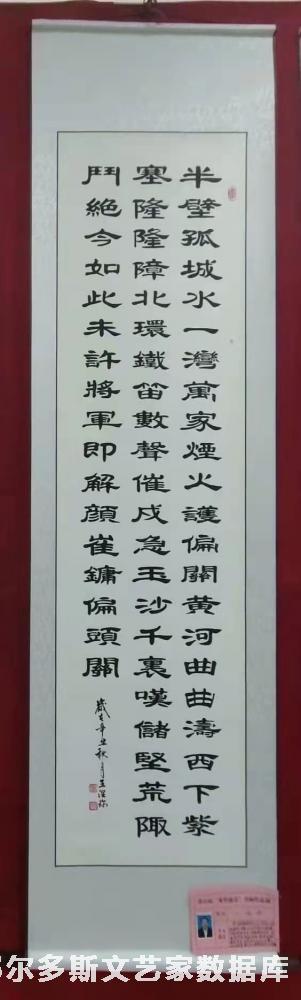 半壁孤城水一灣萬家煙火護偏關黄河曲曲濤西下紫
塞隆隆障北環鐵笛數聲催戍急玉沙千裏嘆儲堅荒陬
鬥絕今如此未許將軍即解顏崔鏞偏頭關
歲在辛丑秋月王
尔多斯文艺家数据库